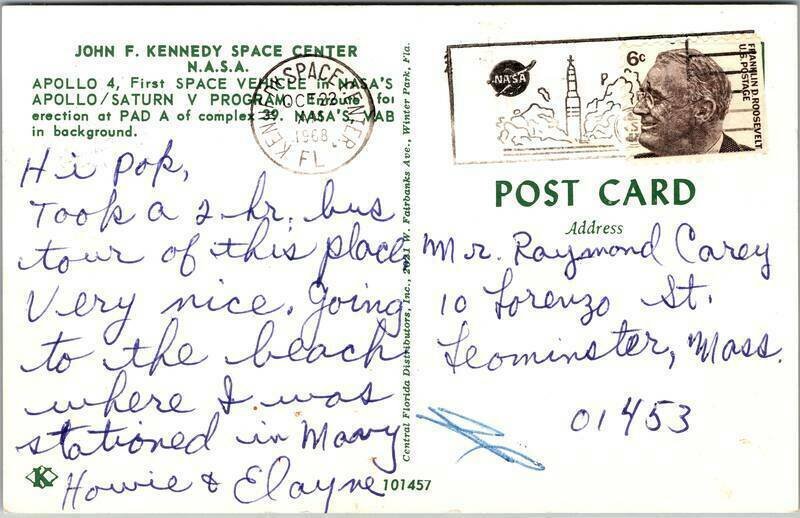 JOHN F. KENNEDY SPACE CENTER
N.A.S.A.
APOLLO 4, First SPACE VEHICLE in NASA'S
APOLLO/SATURN V PROGRAM. Enroute for
erection at PAD A of complex 39. NASA'S VAB
in background.
KENNEDY SPACE CENTER
OCT 22
1968
FL
NASA
6c
FRANKLIN D. ROOSEVELT
U.S. POSTAGE
Hi Pop,
Took a 2 hr. bus
tour of this place
Very nice. Going
to the beach
where I was
stationed in Navy
Howie & Elayne
K
101457
Central Florida Distributors, Inc., 2021 W. Fairbanks Ave., Winter Park, Fla.
POST CARD
Address
Mr. Raymond Carey
10 Lorenzo St.
Leominster, Mass.
01453